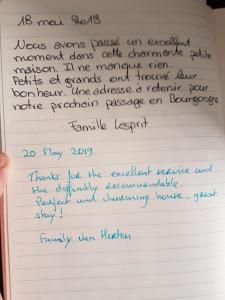 18 mai 2019
Nous avons passé un excellent
moment dans cette charmante petite
maison. Il ne manque rien.
Petits et grands ont trouvé leur
bonheur. Une adresse à retenir pour
notre prochain passage en Bourgogne
Famille Lesprit
20 May 2019
Thanks for the excellent service and
the definitly recommendable.
Perfect and charming house, great
stay!
Family van Herten